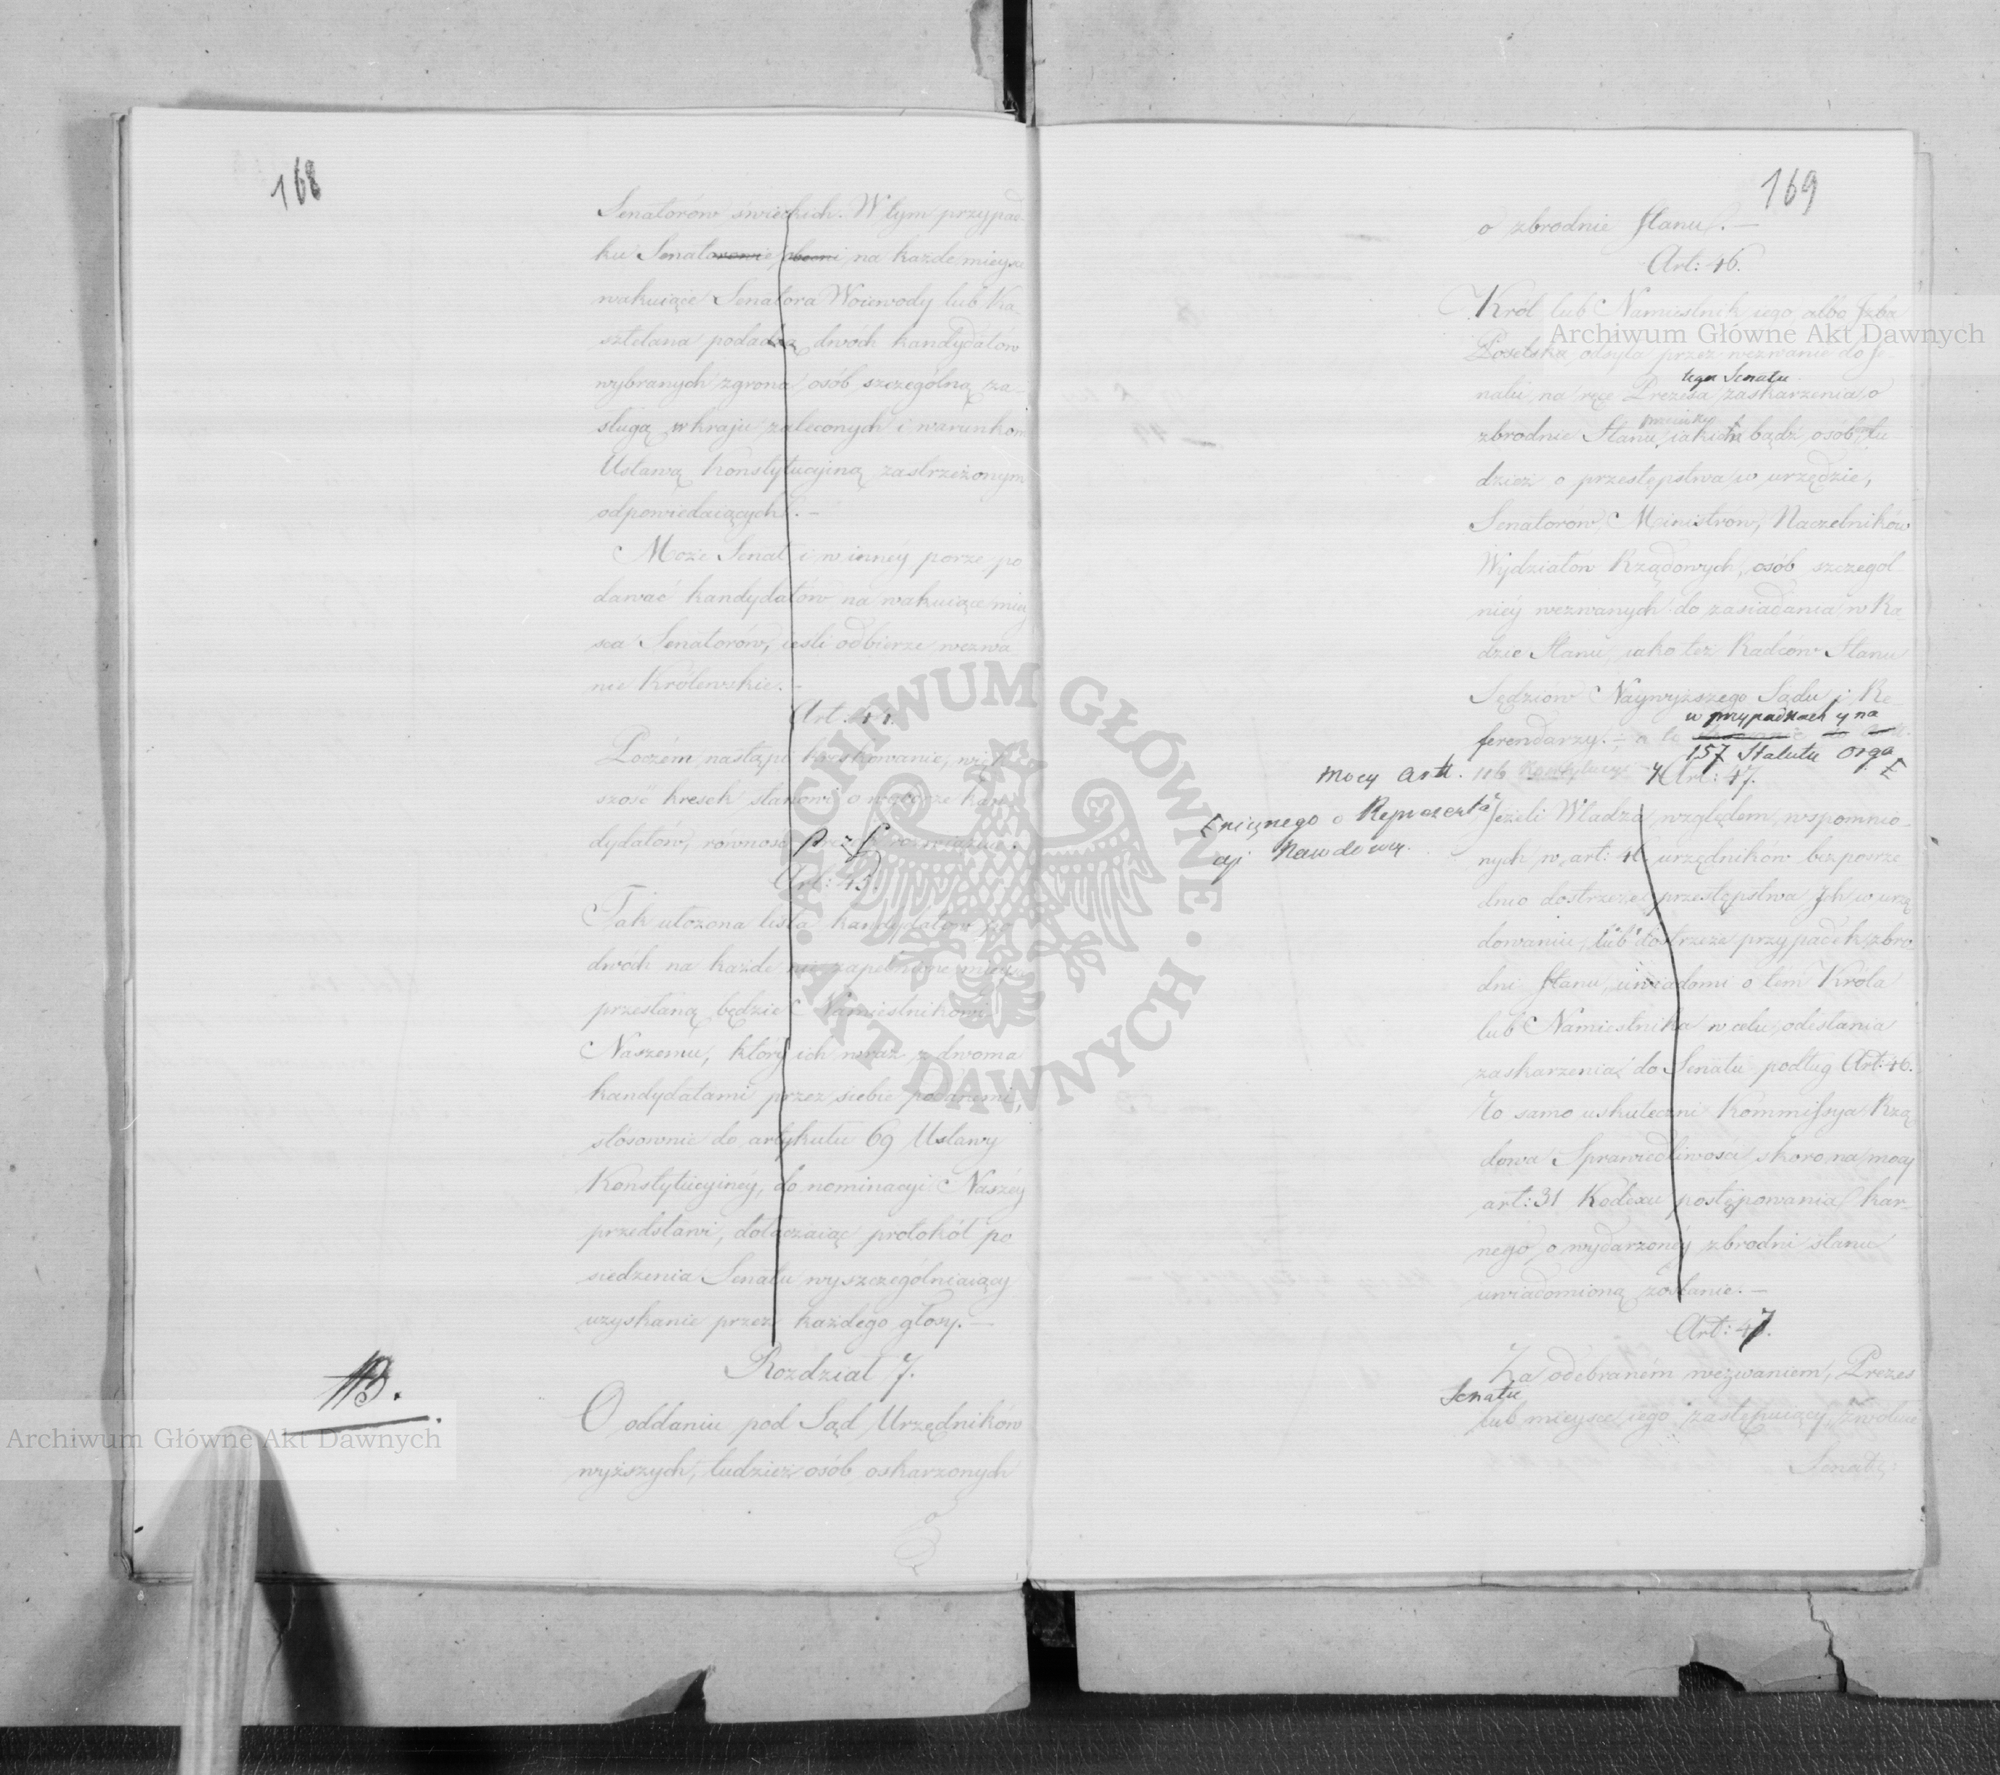 168
Senatorów świeckich. W tym przypad-
ku Senatorowie obecni, na każde mieysce
wakuiące Senatora Woiewody lub Ka-
sztelana podadzą dwóch kandydatów
wybranych z grona osób, szczególną za-
sługą w kraju zaleconych i warunkom
Ustawą Konstytucyiną zastrzeżonym
odpowiedaiących. —
Może Senat i w innéy porze po
dawać kandydatów na wakuiące miey
sca Senatorów, iesli odbierze wezwa
nie Królewskie. —
Art. 44.
Poczém nastąpi kreskowanie, więk
szość kresek stanowi o wyborze kan
dydatow, równość
Art: 45.
Tak ułożona lista kandydatów po
dwóch na każde nie zapełnione mieysce
przesłaną będzie Namiestnikowi
Naszemu, który ich wraz z dwoma
kandydatami przez siebie podanemi,
stósownie do artykułu 69 Ustawy
Konstytucyinéy, do nominacyi Naszéy
przedstawi, dołączaiąc protokół po
siedzenia Senatu wyszczególniaiący
uzyskanie przez każdego głosy. —
Rozdział 7.
O oddaniu pod Sąd Urzędników
wyższych, tudzież osób oskarzonych
169
o zbrodnie Stanu. —
Art: 46.
Król lub Namiestnik iego, albo Izba
Poselska odsyła przez wezwanie do Se-
tego Senatu
natu, na ręce Prezesa zaskarzenia o
zbrodnie Stanu, iakich bądź osób, tu
dzież o przestępstwa w urzędzie,
Senatorów, Ministrów, Naczelników
Wydziałów Rządowych, osób szczegól
niéy wezwanych do zasiadania w Ra-
dzie Stanu, iako też Radców Stanu
Sędziów Naywyższego Sądu i Re-
w przypadkach y na
ferendarzy. —
157 Statutu Orga
mocy Artt. 116 Konstytucyi y Art: 47.
nicznego o Reprezenta
cyi Narodowey.
Jeżeli Władza względem wspomnio-
nych w art: 46 urzędników bezpośre
dnio dostrzeże przestępstwa Ich w urzę
dowaniu, lub dostrzeże przypadek zbro
dni Stanu, uwiadomi o tem Króla
lub Namiestnika w celu odesłania
zaskarzenia do Senatu podług Art: 46.
To samo uskuteczni Kommissya Rzą
dowa Sprawiedliwości, skoro na mocy
art: 31 Kodexu postępowania kar-
nego, o wydarzonéy zbrodni stanu
uwiadomioną zostanie. —
Art: 47.
Za odebraném wezwaniem, Prezes
Senatu
lub mieysce iego zastępuiący, zwoła
Senat
Archiwum Główne Akt Dawnych
Archiwum Główne Akt Dawnych
ARCHIWUM GŁÓWNE • AKT DAWNYCH •